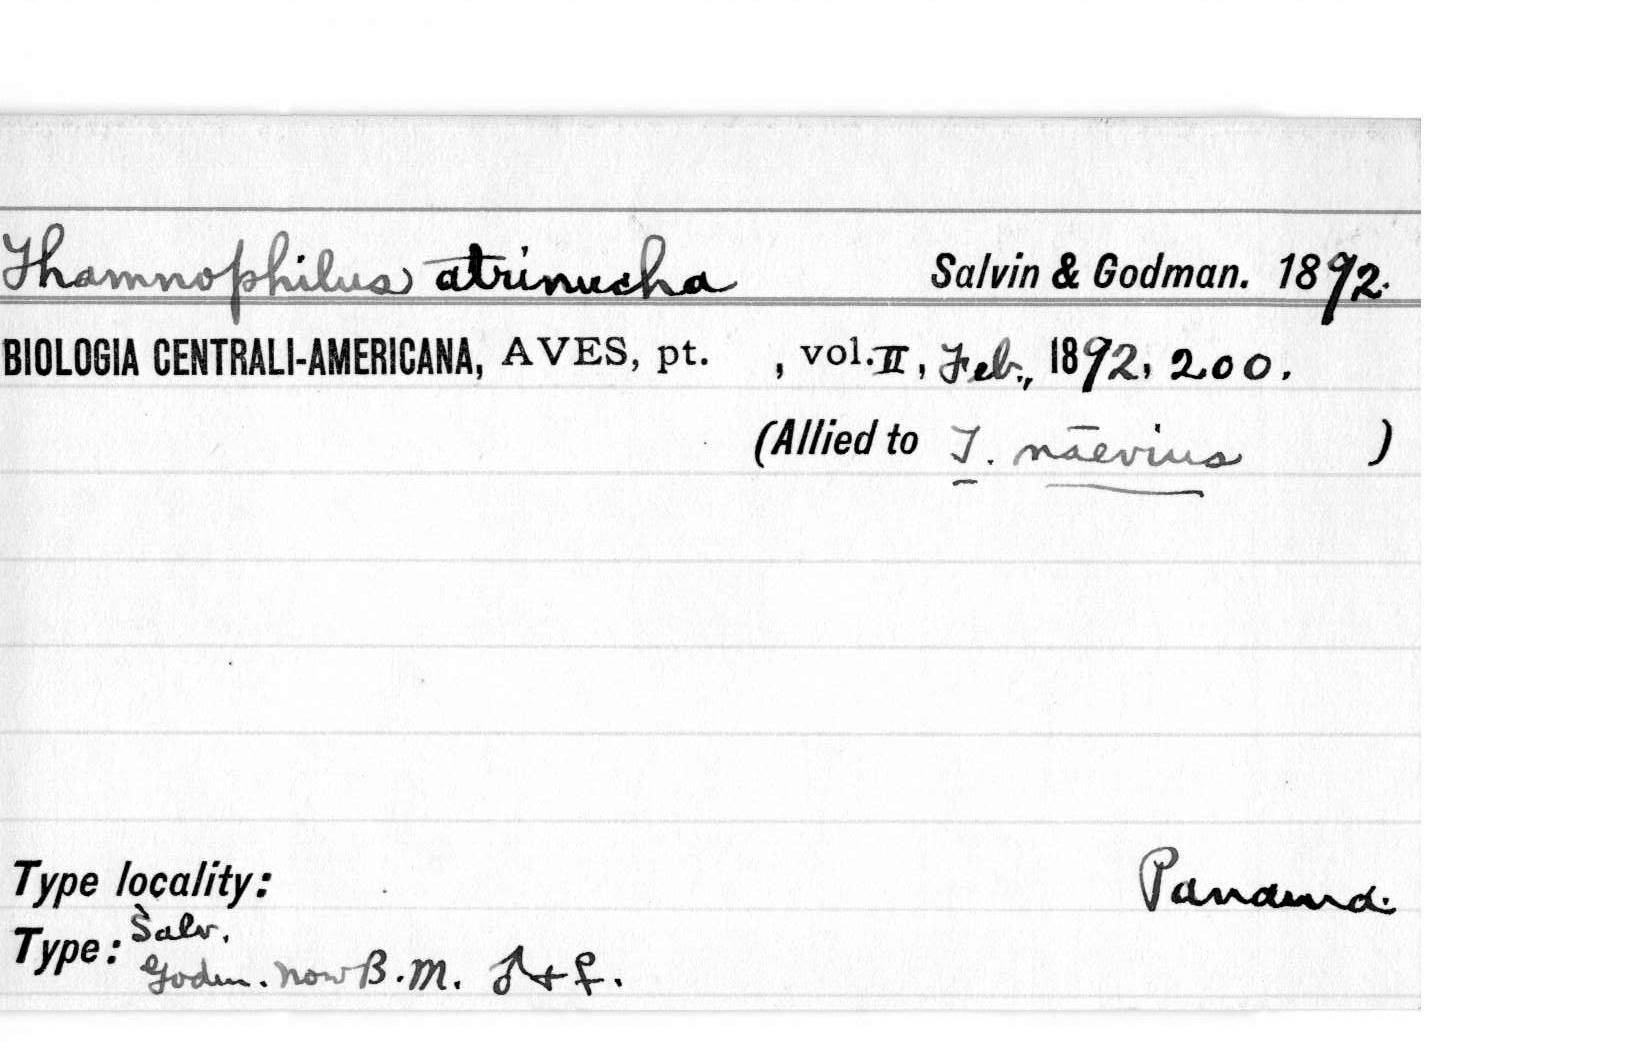 Thamnophilus atrinucha Salvin & Godman. 1892.
BIOLOGIA CENTRALI-AMERICANA, AVES, pt. , vol. II, Feb., 1892, 200.
(Allied to T. nāevius )
Type locality: Panama.
Type: Salv.
Godm. now B.M. ♂ + ♀.